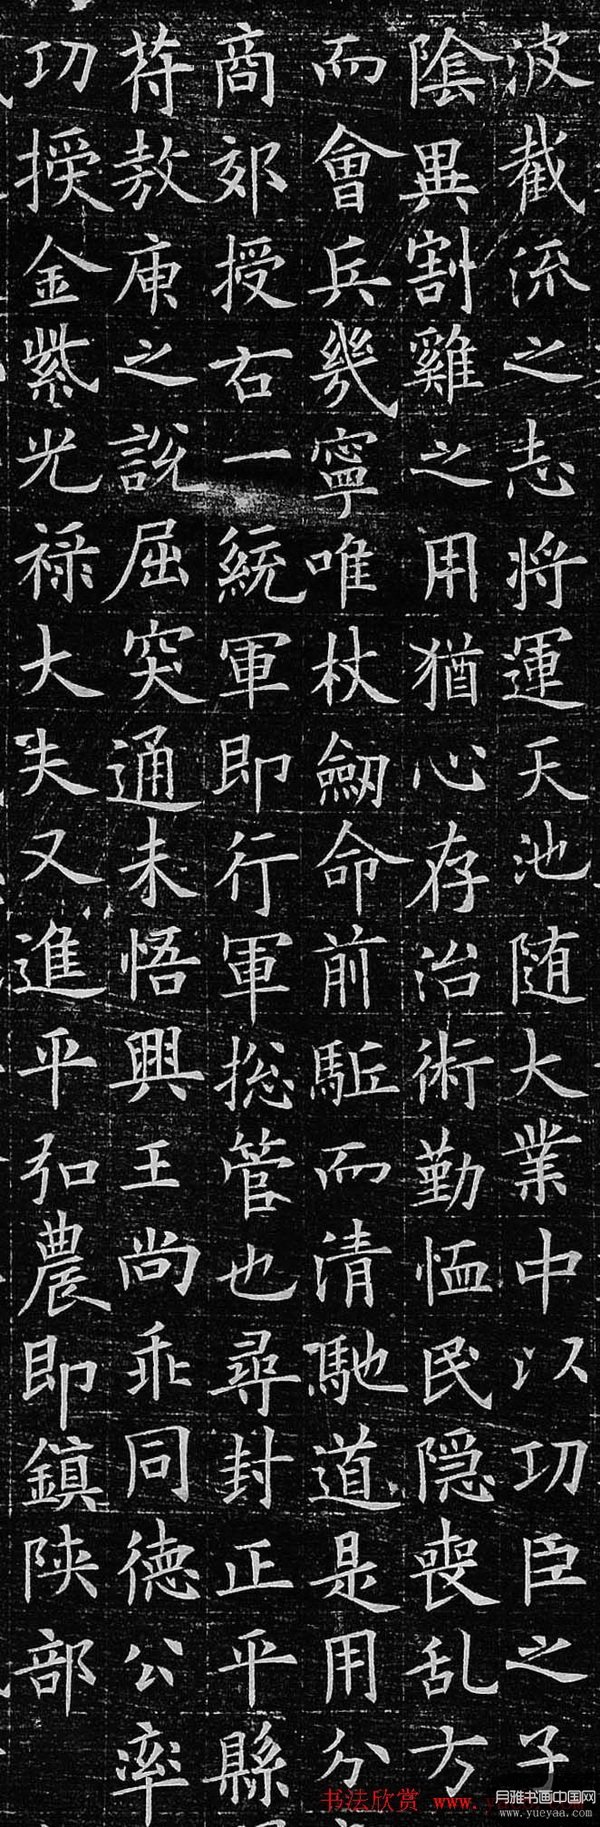 波截流之志将運天池随大業中以功臣之子
陰異割雞之用猶心存治術勤恤民隐喪乱方
而會兵幾寧唯杖劒命前駈而清馳道是用分
商郊授右一統軍即行軍捴管也尋封正平縣
苻敖庾之說屈突通未悟興王尚乖同德公率
功授金紫光禄大夫又進平弘農即鎮陝部
书法欣赏 www.
月雅书画中国网
www.yueyaa.com